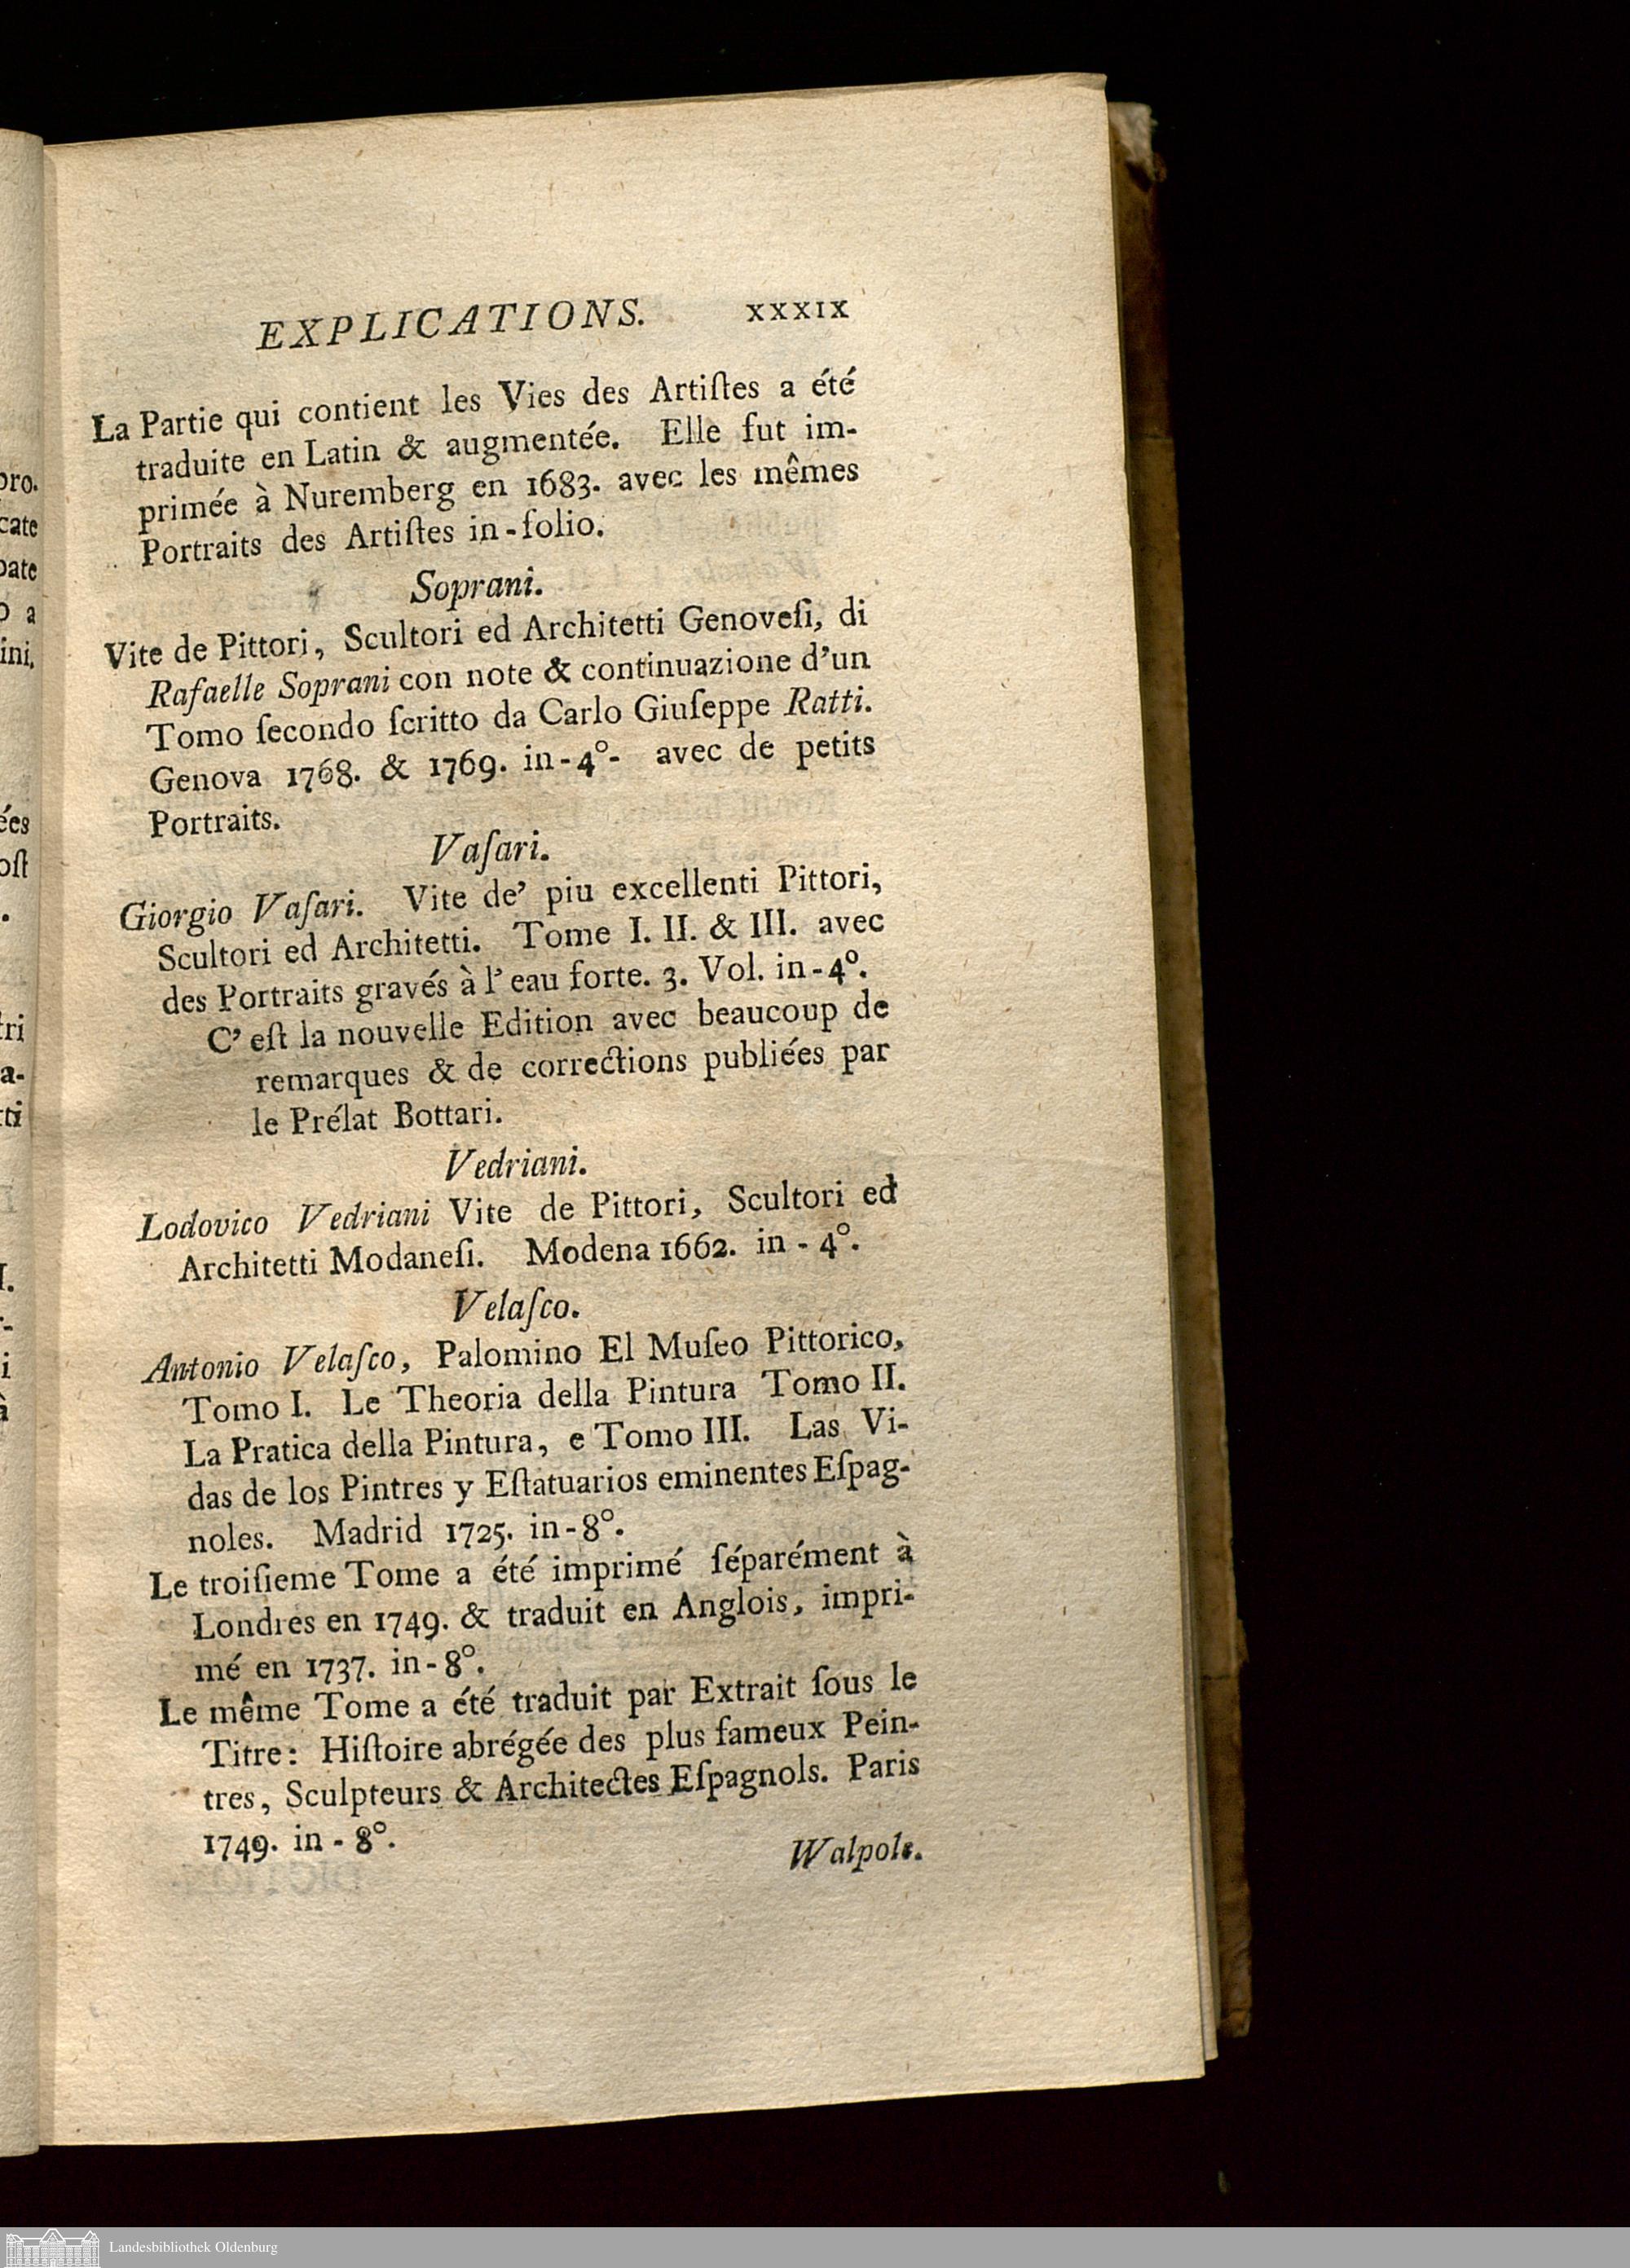 EXPLICATIONS. XXXIX
La Partie qui contient les Vies des Artiſtes a été
traduite en Latin & augmentée. Elle fut im-
primée à Nuremberg en 1683. avec les mêmes
Portraits des Artiſtes in-folio.
Soprani.
Vite de Pittori, Scultori ed Architetti Genoveſi, di
Rafaelle Soprani con note & continuazione d'un
Tomo ſecondo ſcritto da Carlo Giuſeppe Ratti.
Genova 1768. & 1769. in-4°- avec de petits
Portraits.
Vaſari.
Giorgio Vaſari. Vite de' piu excellenti Pittori,
Scultori ed Architetti. Tome I. II. & III. avec
des Portraits gravés à l'eau forte. 3. Vol. in-4°.
C'eſt la nouvelle Edition avec beaucoup de
remarques & de corrections publiées par
le Prélat Bottari.
Vedriani.
Lodovico Vedriani Vite de Pittori, Scultori ed
Architetti Modaneſi. Modena 1662. in-4°.
Velaſco.
Antonio Velaſco, Palomino El Muſeo Pittorico,
Tomo I. Le Theoria della Pintura Tomo II.
La Pratica della Pintura, e Tomo III. Las Vi-
das de los Pintres y Eſtatuarios eminentes Eſpag-
noles. Madrid 1725. in-8°.
Le troiſieme Tome a été imprimé ſéparément à
Londres en 1749. & traduit en Anglois, impri-
mé en 1737. in-8°.
Le même Tome a été traduit par Extrait ſous le
Titre: Hiſtoire abrégée des plus fameux Pein-
tres, Sculpteurs & Architectes Eſpagnols. Paris
1749. in-8°.
Walpole.
pro.
cate
ini.
ées
oſt
tri
a-
tti
Landesbibliothek Oldenburg